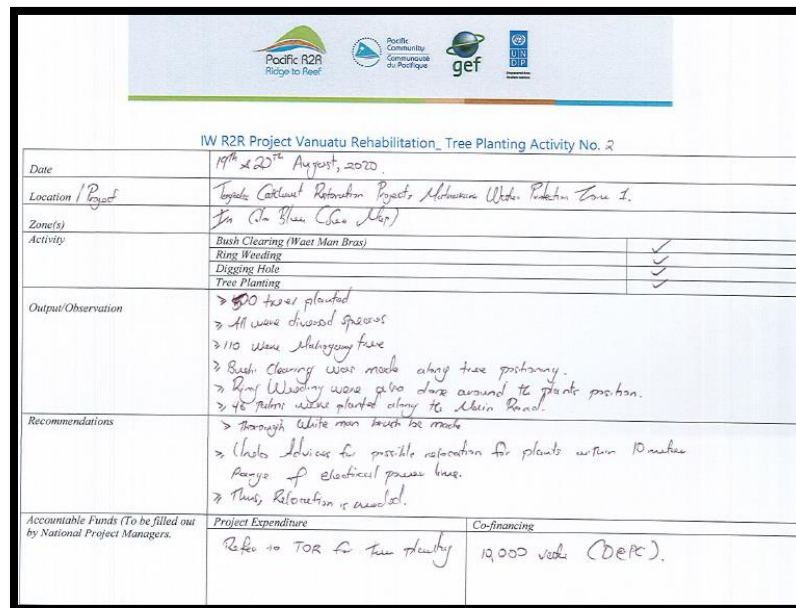 Pacific R2R
Ridge to Reef
Pacific
Community
Communauté
du Pacifique
gef
U N
D P
IW R2R Project Vanuatu Rehabilitation_ Tree Planting Activity No. 2
Date
19th & 20th August, 2020.
Location / Project
Catchment Restoration Project, Water Protection Zone 1.
Zone(s)
In Blue (See Map)
Activity
Bush Clearing (Waet Man Bras) ✓
Ring Weeding ✓
Digging Hole ✓
Tree Planting ✓
Output/Observation
> 500 trees planted
> All were diversed species
> 110 were Mahogany tree
> Bush Clearing was made along tree positioning.
> Ring Weeding were also done around the plants position.
> 45 were planted along the Main Road.
Recommendations
> Thorough White man brush be made
> Advices for possible relocation for plants within 10 meter
Range of electrical power line.
> Thus, Relocation is needed.
Accountable Funds (To be filled out
by National Project Managers.
Project Expenditure
Co-financing
Refer to TOR for tree planting
10,000 vatu (DEPC).